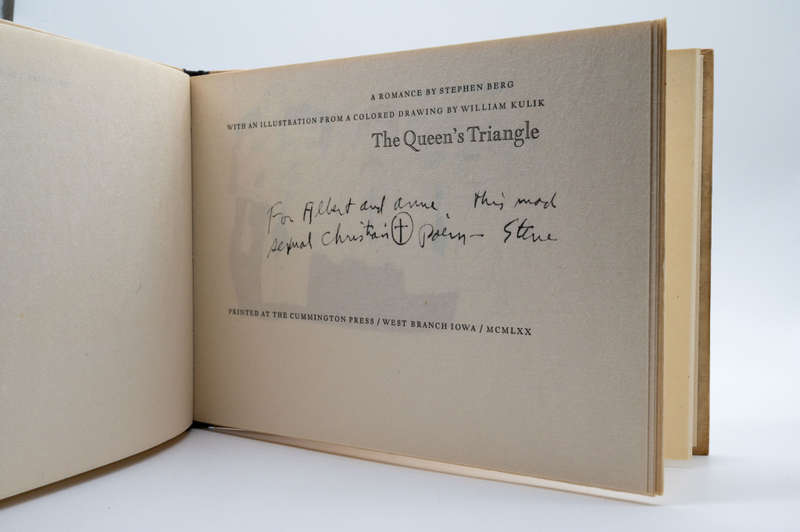 A ROMANCE BY STEPHEN BERG
WITH AN ILLUSTRATION FROM A COLORED DRAWING BY WILLIAM KULIK
The Queen's Triangle
For Albert and Anne, this mad
sexual Christian poem — Steve
PRINTED AT THE CUMMINGTON PRESS / WEST BRANCH IOWA / MCMLXX